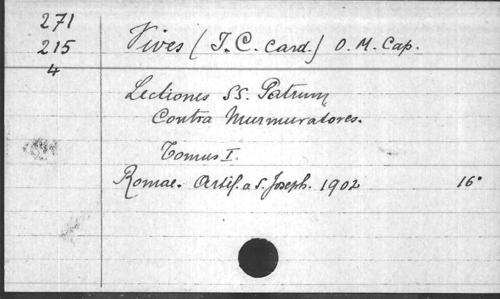 271
215
4
Vives (J. C. Card.) O. M. Cap.
Lectiones SS. Patrum
Contra Murmuratores.
Tomus I.
Romae. Artif. a S. Joseph. 1902 16°